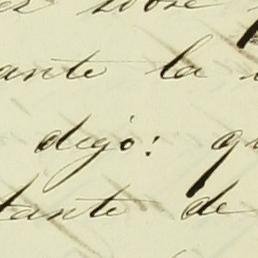 sobre
ante la
dejó: q
tante de